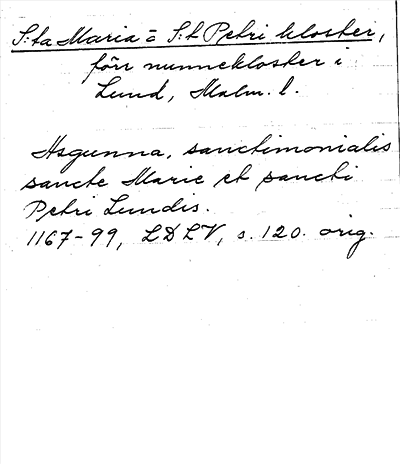 S:ta Maria = S:t Petri kloster,
förr nunnekloster i
Lund, Malm. l.
Asgunna, sanctimonialis
sancte Marie et sancti
Petri Lundis.
1167-99, LDLV, s. 120. orig.